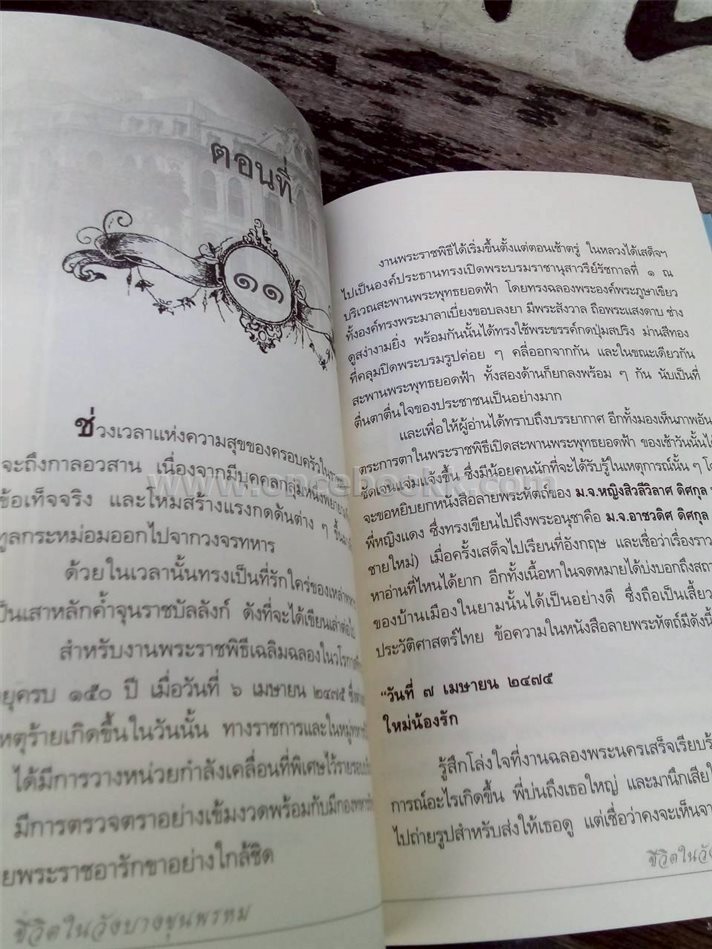 ตอนที่
๑๑
ช่วงเวลาแห่งความสุขของครอบครัวใน
จะถึงกาลอวสาน เนื่องจากมีบุคคลกลุ่มหนึ่งพยายาม
ข้อเท็จจริง และโหมสร้างแรงกดดันต่าง ๆ ขึ้น
ทูลกระหม่อมออกไปจากวงจรทหาร
ด้วยในเวลานั้นทรงเป็นที่รักใคร่ของเหล่า
เป็นเสาหลักค้ำจุนราชบัลลังก์ ดังที่จะได้เขียนเล่าต่อไป
สำหรับงานพระราชพิธีเฉลิมฉลองในวโรกาส
ยุครบ ๑๕๐ ปี เมื่อวันที่ ๖ เมษายน ๒๔๗๕
หตุร้ายเกิดขึ้นในวันนั้น ทางราชการและในหมู่
ได้มีการวางหน่วยกำลังเคลื่อนที่พิเศษไว้รายรอบ
มีการตรวจตราอย่างเข้มงวดพร้อมกับมีกอง
ยพระราชอารักขาอย่างใกล้ชิด
ชีวิตในวังบางขุนพรหม
งานพระราชพิธีได้เริ่มขึ้นตั้งแต่ตอนเช้าตรู่ ในหลวงได้เสด็จฯ
ไปเป็นองค์ประธานทรงเปิดพระบรมราชานุสาวรีย์รัชกาลที่ ๑ ณ
บริเวณสะพานพระพุทธยอดฟ้า โดยทรงฉลองพระองค์พระภูษาเขียว
ทั้งองค์ทรงพระมาลาเบี่ยงขอบลงยา มีพระสังวาล ถือพระแสงดาบ ช่าง
ดูสง่างามยิ่ง พร้อมกันนั้นได้ทรงใช้พระขรรค์กดปุ่มสปริง ม่านสีทอง
ที่คลุมปิดพระบรมรูปค่อย ๆ คลี่ออกจากกัน และในขณะเดียวกัน
สะพานพระพุทธยอดฟ้า ทั้งสองด้านก็ยกลงพร้อม ๆ กัน นับเป็นที่
ตื่นตาตื่นใจของประชาชนเป็นอย่างมาก
และเพื่อให้ผู้อ่านได้ทราบถึงบรรยากาศ อีกทั้งมองเห็นภาพอัน
ตระการตาในพระราชพิธีเปิดสะพานพระพุทธยอดฟ้า ของเช้าวันนั้นได้
ชัดเจนแจ่มแจ้งขึ้น ซึ่งมีน้อยคนนักที่จะได้รับรู้ในเหตุการณ์นั้น ๆ
จะขอหยิบยกหนังสือลายพระหัตถ์ของ ม.จ.หญิงสิวลีวิลาศ ดิศกุล
พี่หญิงแดง) ซึ่งทรงเขียนไปถึงพระอนุชาคือ ม.จ.อาชวดิศ ดิศกุล
ชายใหม่) เมื่อครั้งเสด็จไปเรียนที่อังกฤษ และเชื่อว่าเรื่องราว
หาอ่านที่ไหนได้ยาก อีกทั้งเนื้อหาในจดหมายได้บ่งบอกถึง
ของบ้านเมืองในยามนั้นได้เป็นอย่างดี ซึ่งถือเป็นเสี้ยว
ประวัติศาสตร์ไทย ข้อความในหนังสือลายพระหัตถ์มีดังนี้
“วันที่ ๗ เมษายน ๒๔๗๕
ใหม่น้องรัก
รู้สึกโล่งใจที่งานฉลองพระนครเสร็จเรียบร้
การณ์อะไรเกิดขึ้น พี่บ่นถึงเธอใหญ่ และมานึกเสียใ
ไปถ่ายรูปสำหรับส่งให้เธอดู แต่เชื่อว่าคงจะเห็นจา
ชีวิตในวัง